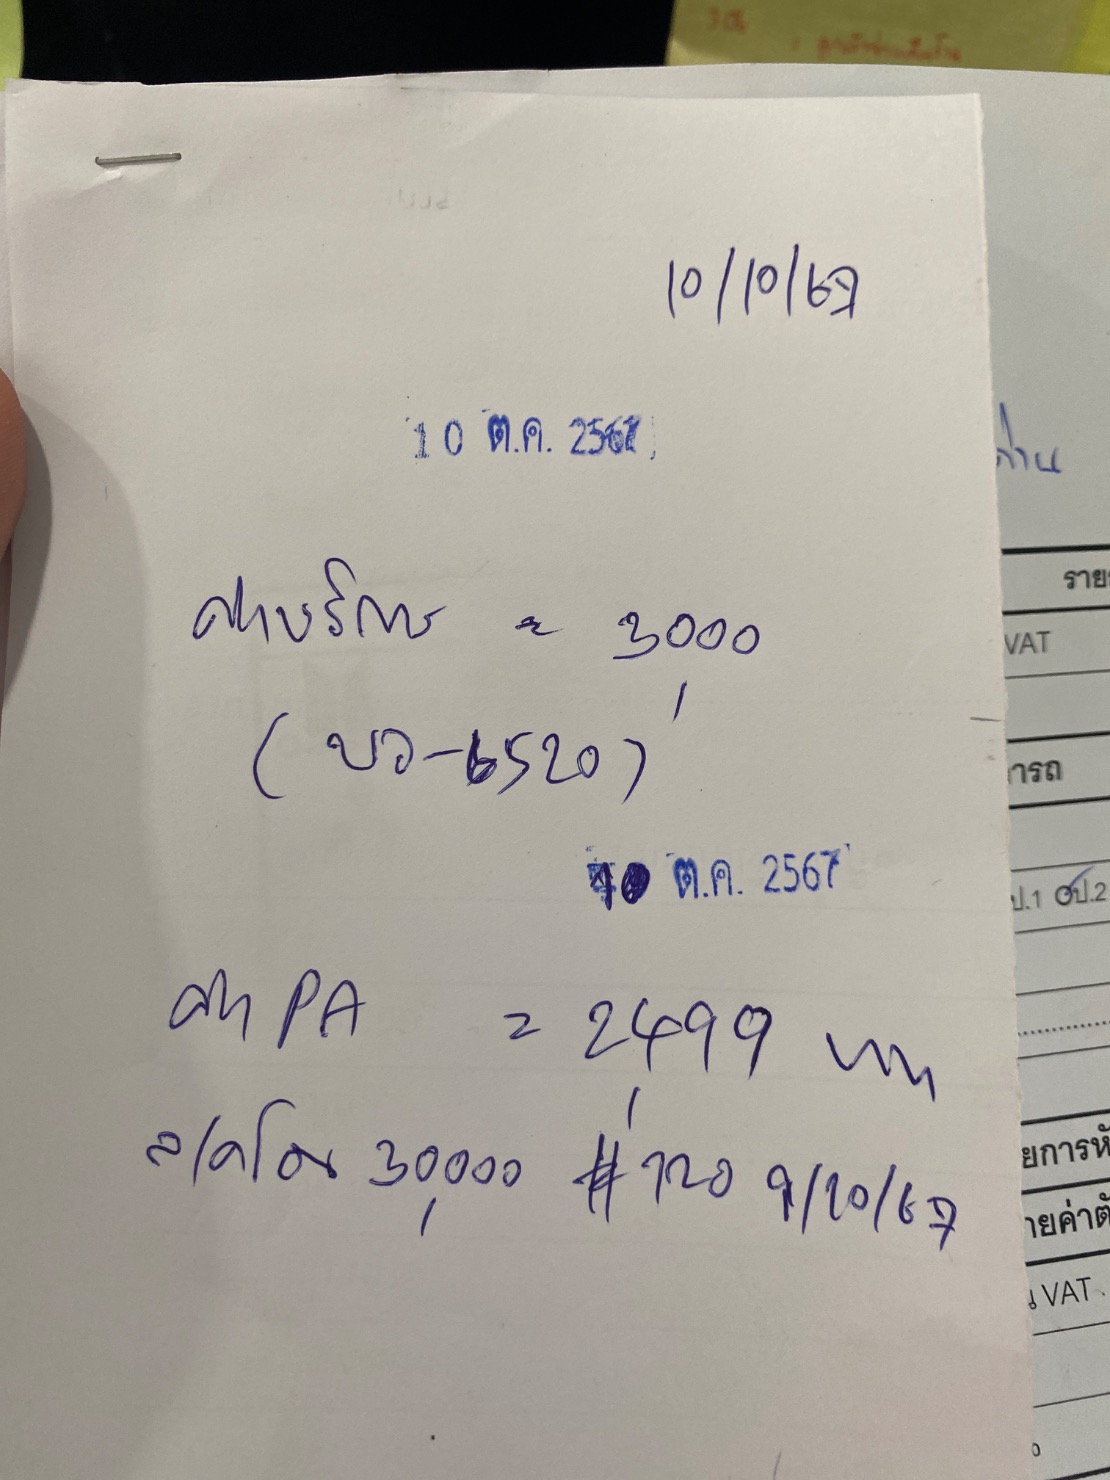 10/10/67
10 ต.ค. 2567
ค่าบริการ = 3,000
(บว-6520)
10 ต.ค. 2567
ค่า PA = 2,499 บาท
30,000 # 9/10/67
ราย
VAT
ารถ
ป.1 ป.2
ยการหั
ายค่าตั
VAT